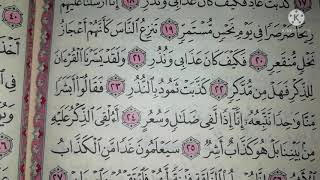 كَذَّبَتْ عَادٌ فَكَيْفَ كَانَ عَذَابِى وَنُذُرِ
رِيحًا صَرْصَرًا فِى يَوْمِ نَحْسٍ مُّسْتَمِرٍّ ١٩ تَنزِعُ ٱلنَّاسَ كَأَنَّهُمْ أَعْجَازُ
نَخْلٍ مُّنقَعِرٍ ٢٠ فَكَيْفَ كَانَ عَذَابِى وَنُذُرِ ٢١ وَلَقَدْ يَسَّرْنَا ٱلْقُرْءَانَ
لِلذِّكْرِ فَهَلْ مِن مُّدَّكِرٍ ٢٢ كَذَّبَتْ ثَمُودُ بِٱلنُّذُرِ ٢٣ فَقَالُوٓا۟ أَبَشَرًا
مِّنَّا وَٰحِدًا نَّتَّبِعُهُۥٓ إِنَّآ إِذًا لَّفِى ضَلَٰلٍ وَسُعُرٍ ٢٤ أَءُلْقِىَ ٱلذِّكْرُ عَلَيْهِ
مِنۢ بَيْنِنَا بَلْ هُوَ كَذَّابٌ أَشِرٌ ٢٥ سَيَعْلَمُونَ غَدًا مَّنِ ٱلْكَذَّابُ